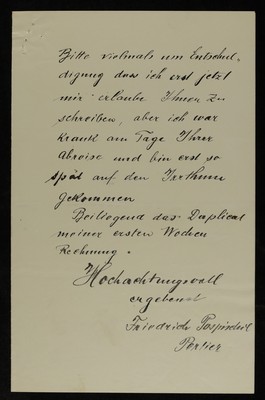 Bitte vielmals um Entschul-
digung dass ich erst jetzt
mir erlaube Ihnen zu
schreiben, aber ich war
krank am Tage Ihrer
Abreise und bin erst so
spät auf den Irrthum
gekommen
Beiliegend das Duplicat
meiner ersten Wochen
Rechnung.
Hochachtungsvoll
ergebenst
Friedrich Pospischil
Portier